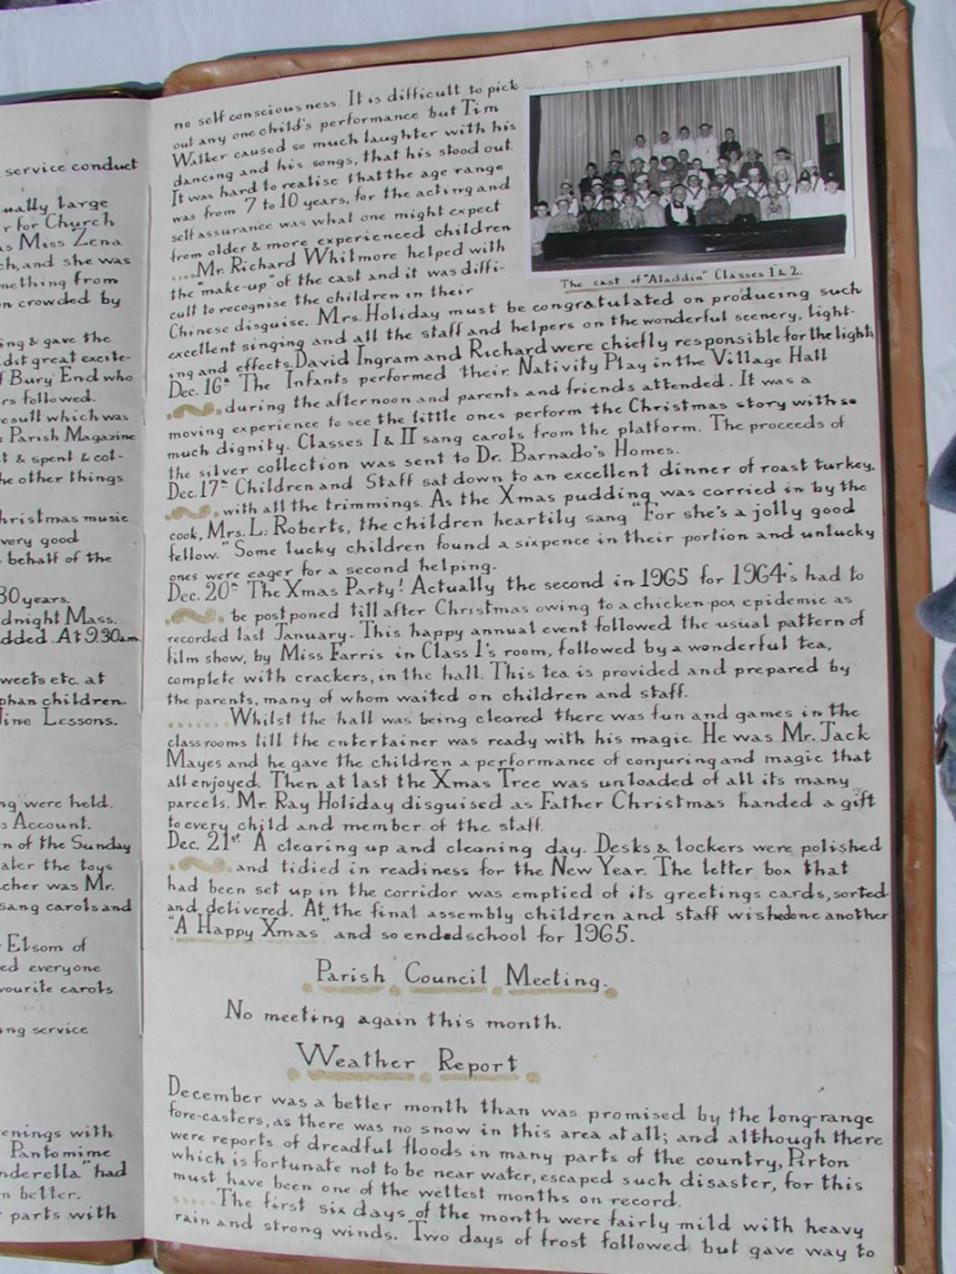 service conduct
ually large
r for Church
as Miss Zena
ch, and she was
mething from
n crowded by
ing & gave the
idst great excite-
f Bury End who
rs followed.
result which was
Parish Magazine
t & spent & col-
he other things
hristmas music
very good
behalf of the
30 years.
dnight Mass.
dded. At 9.30 am.
weets etc. at
phan children.
line Lessons.
ng were held.
s Account.
n of the Sunday
ater the toys
cher was Mr.
sang carols and
Elsom of
ed everyone
vourite carols
ing service
enings with
Pantomime
nderella" had
n better.
parts with
no self consciousness. It is difficult to pick
out any one child's performance but Tim
Walker caused so much laughter with his
dancing and his songs, that his stood out.
It was hard to realise that the age range
was from 7 to 10 years, for the acting and
self assurance was what one might expect
from older & more experienced children
....Mr. Richard Whitmore helped with
the "make-up" of the cast and it was diffi-
cult to recognise the children in their
The cast of "Aladdin" Classes 1 & 2.
Chinese disguise. Mrs. Holiday must be congratulated on producing such
excellent singing and all the staff and helpers on the wonderful scenery, light-
ing and effects. David Ingram and Richard were chiefly responsible for the light
Dec. 16th The Infants performed their Nativity Play in the Village Hall
during the afternoon and parents and friends attended. It was a
moving experience to see the little ones perform the Christmas story with so
much dignity. Classes I & II sang carols from the platform. The proceeds of
the silver collection was sent to Dr. Barnado's Homes.
Dec. 17th Children and Staff sat down to an excellent dinner of roast turkey,
with all the trimmings. As the Xmas pudding was carried in by the
cook, Mrs. L. Roberts, the children heartily sang "For she's a jolly good
fellow." Some lucky children found a sixpence in their portion and unlucky
ones were eager for a second helping.
Dec. 20th The Xmas Party! Actually the second in 1965 for 1964's had to
be postponed till after Christmas owing to a chicken-pox epidemic as
recorded last January. This happy annual event followed the usual pattern of
film show, by Miss Farris in Class 1's room, followed by a wonderful tea,
complete with crackers, in the hall. This tea is provided and prepared by
the parents, many of whom waited on children and staff.
.......Whilst the hall was being cleared there was fun and games in the
classrooms till the entertainer was ready with his magic. He was Mr. Jack
Mayes and he gave the children a performance of conjuring and magic that
all enjoyed. Then at last the Xmas Tree was unloaded of all its many
parcels. Mr. Ray Holiday disguised as Father Christmas handed a gift
to every child and member of the staff.
Dec. 21st A clearing up and cleaning day. Desks & lockers were polished
and tidied in readiness for the New Year. The letter box that
had been set up in the corridor was emptied of its greetings cards, sorted
and delivered. At the final assembly children and staff wished one another
"A Happy Xmas" and so ended school for 1965.
Parish Council Meeting.
No meeting again this month.
Weather Report
December was a better month than was promised by the long-range
fore-casters, as there was no snow in this area at all; and although there
were reports of dreadful floods in many parts of the country, Pirton
which is fortunate not to be near water, escaped such disaster, for this
must have been one of the wettest months on record.
.....The first six days of the month were fairly mild with heavy
rain and strong winds. Two days of frost followed but gave way to